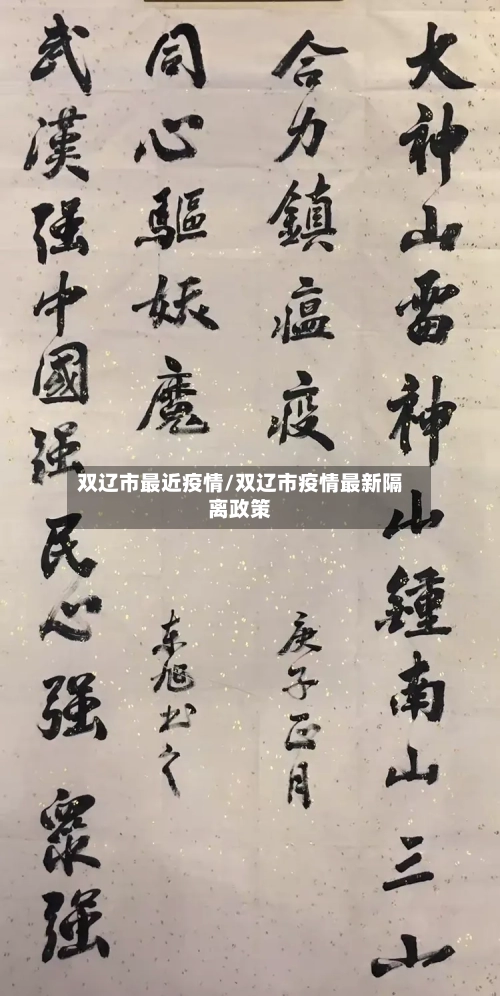 火神山雷神山鍾南山三山
合力鎮瘟疫
庚子正月
同心驅妖魔
东旭书之
武漢强中國强民心强眾强
双辽市最近疫情/双辽市疫情最新隔
离政策